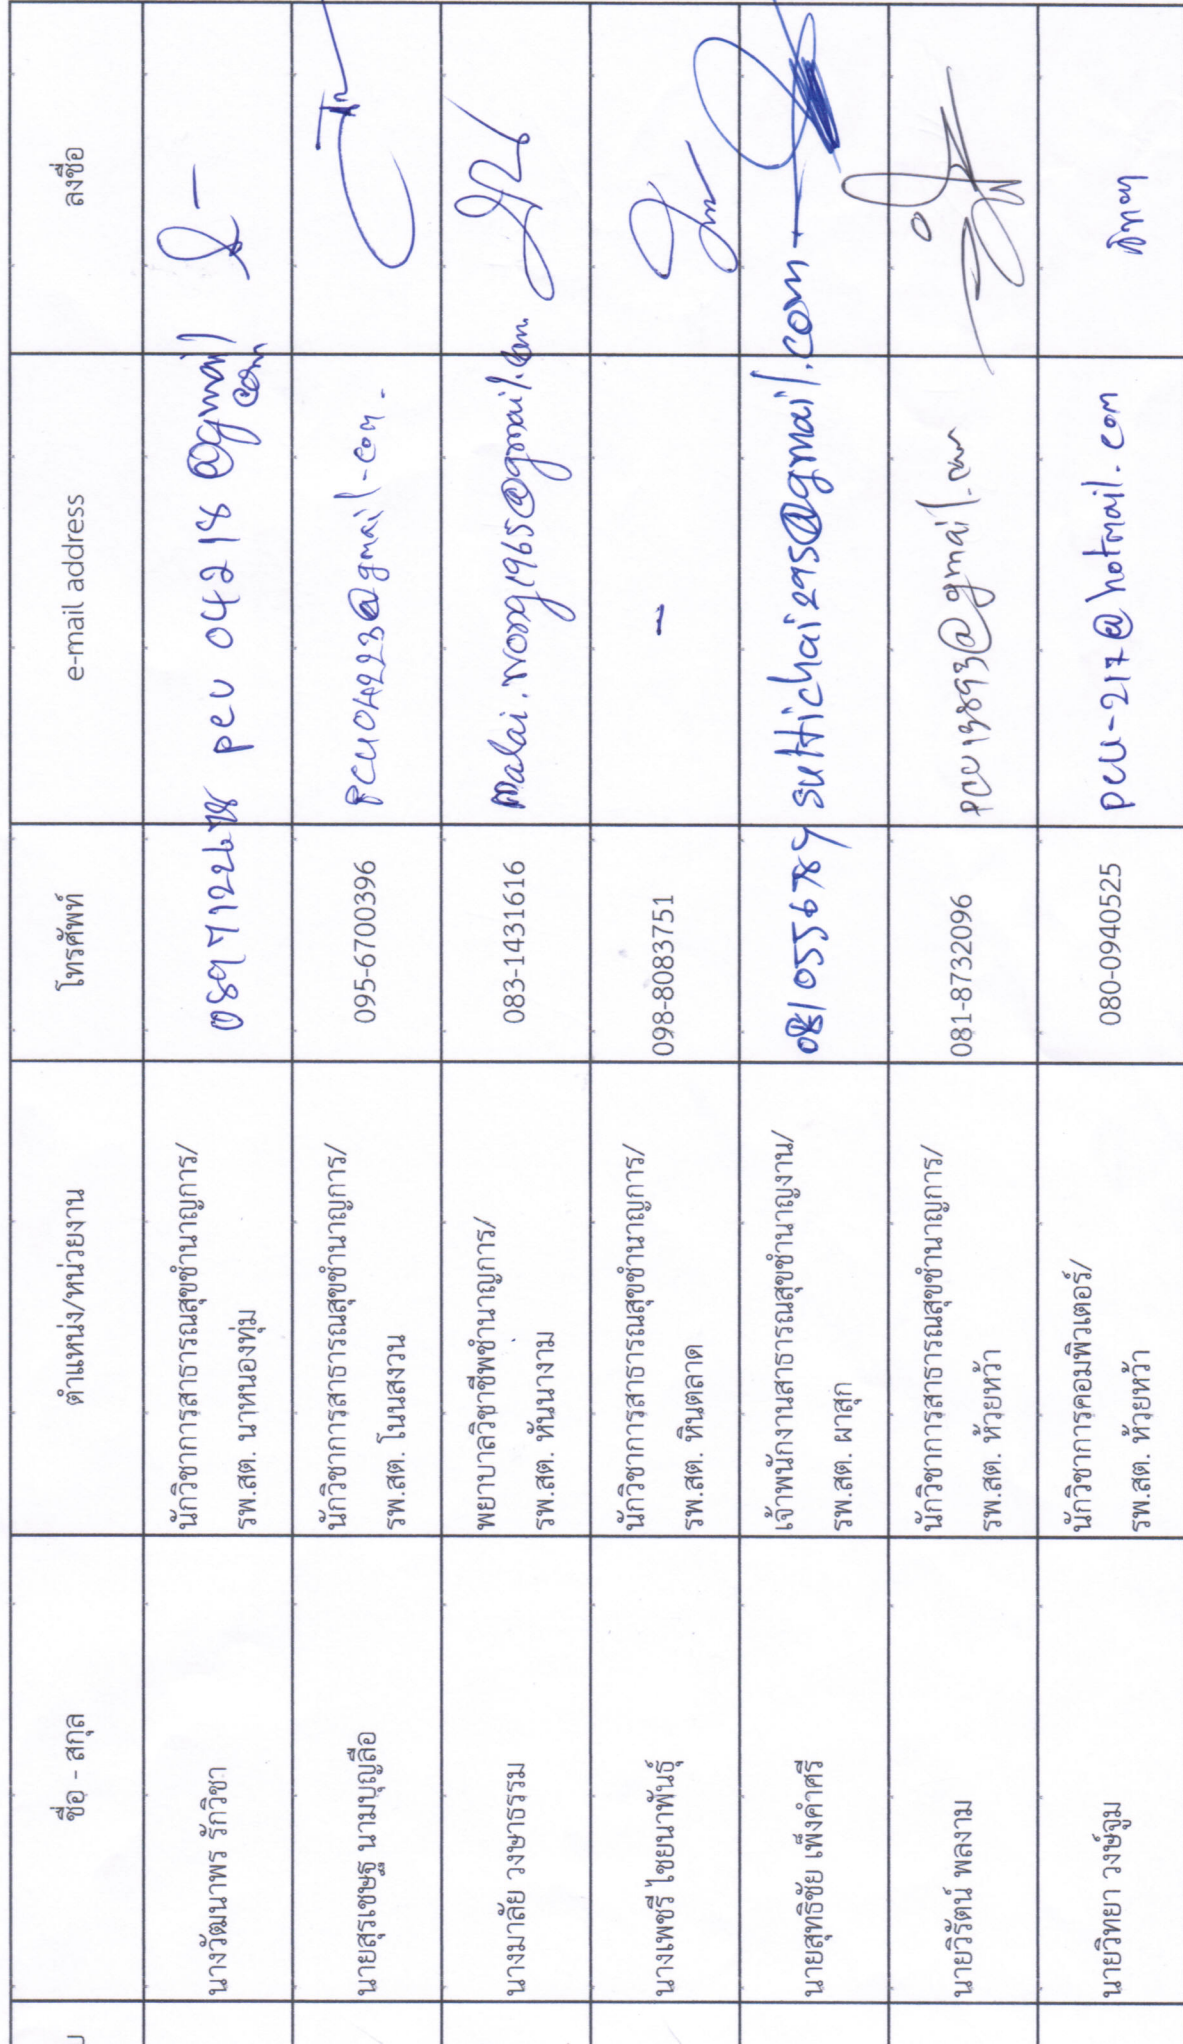 ชื่อ - สกุล ตำแหน่ง/หน่วยงาน โทรศัพท์ e-mail address ลงชื่อ
นางวัฒนาพร รักวิชา นักวิชาการสาธารณสุขชำนาญการ/
รพ.สต. นาหนองทุ่ม pcu 04218 @gmail
com
นายสุรเชษฐ นามบุญลือ นักวิชาการสาธารณสุขชำนาญการ/
รพ.สต. โนนสงวน 095-6700396 pcu04223@gmail.com.
นางมาลัย วงษาธรรม พยาบาลวิชาชีพชำนาญการ/
รพ.สต. หันนางาม 083-1431616 malai.wong1965@gmail.com.
นางเพชรี ไชยนาพันธุ์ นักวิชาการสาธารณสุขชำนาญการ/
รพ.สต. หินตลาด 098-8083751 -
นายสุทธิชัย เพ็งคำศรี เจ้าพนักงานสาธารณสุขชำนาญงาน/
รพ.สต. ผาสุก 0810556789 suttichai295@gmail.com
นายวิรัตน์ พลงาม นักวิชาการสาธารณสุขชำนาญการ/
รพ.สต. ห้วยหว้า 081-8732096 pcu13893@gmail.com
นายวิทยา วงษ์จูม นักวิชาการคอมพิวเตอร์/
รพ.สต. ห้วยหว้า 080-0940525 pcu-217@hotmail.com